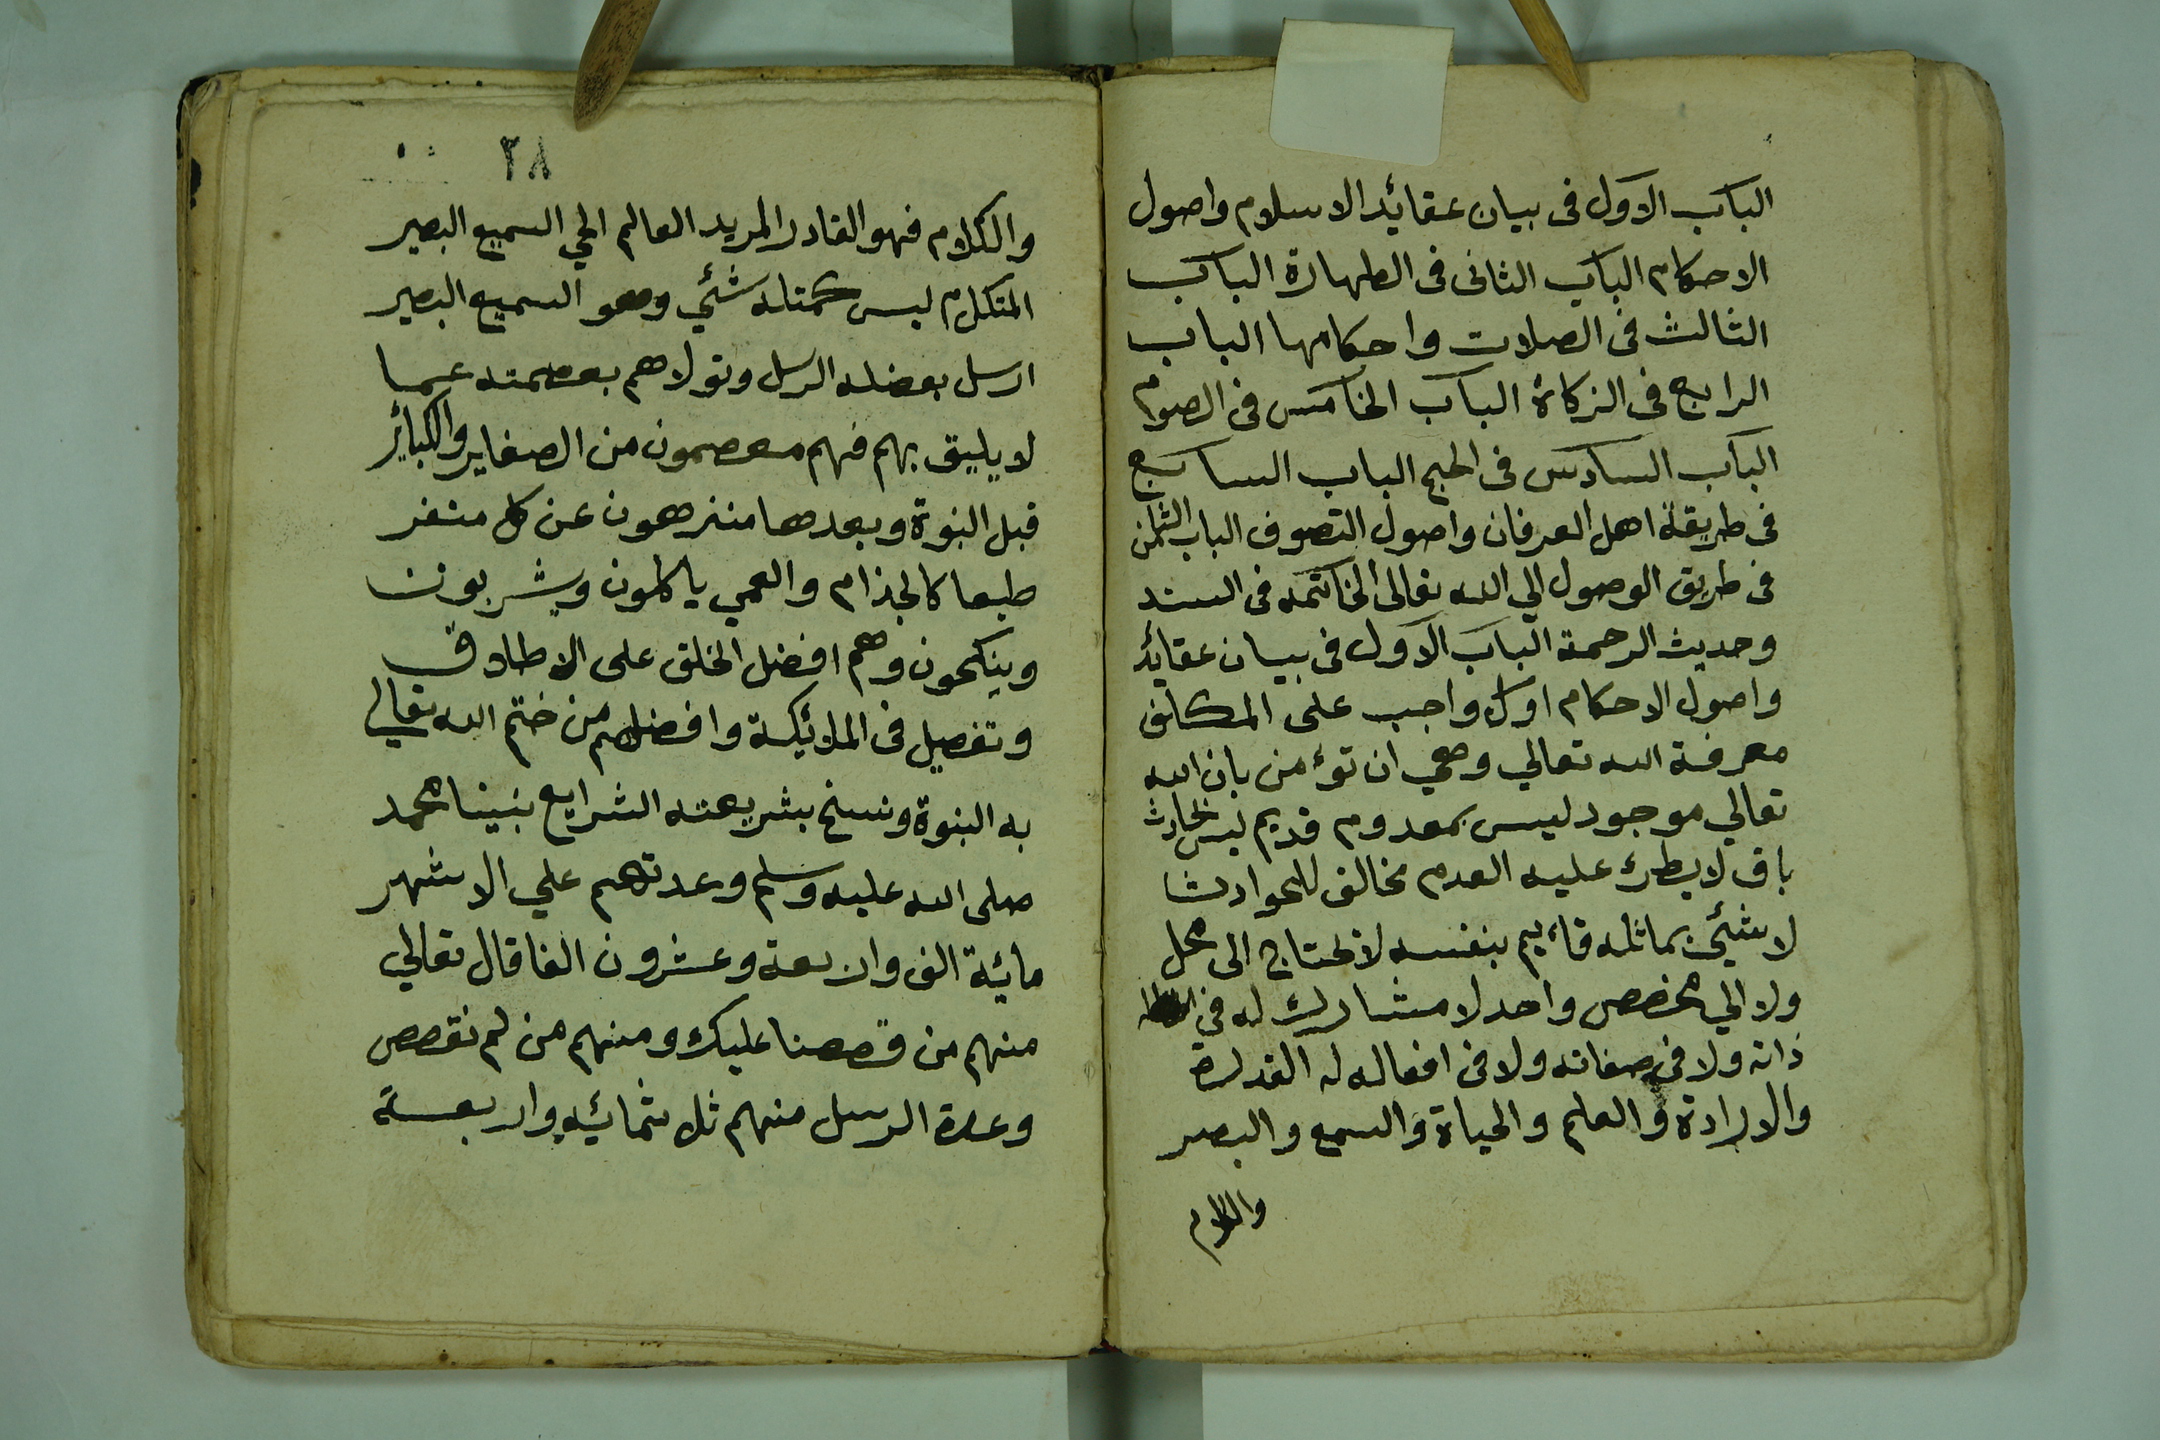 الباب الاول فى بيان عقائد الاسلام واصول
الاحكام الباب الثانى فى الطهارة الباب
الثالث فى الصلات واحكامها الباب
الرابع فى الزكاة الباب الخامس فى الصوم
الباب السادس فى الحج الباب السابع
فى طريقة اهل العرفان واصول التصوف الباب الثامن
فى طريق الوصول الي الله تعالى الخاتمه فى السند
وحديث الرحمة الباب الاول فى بيان عقائد
واصول الاحكام اول واجب على المكلف
معرفة الله تعالي وهي ان تؤمن بان الله
تعالي موجود ليس بمعدوم قديم ليس بحادث
باق لا يطرئ عليه العدم مخالف للحوادث
لا شئي يماثله قاييم بنفسه لا يحتاج الى محل
ولا الي مخصص واحد لا مشارك له فى
ذاته ولا فى صفاته ولا فى افعاله له القدرة
والارادة والعلم والحياة والسمع والبصر
والكلام
٢٨
والكلام فهو القادر المريد العالم الحي السميع البصير
المتكلم ليس كمثله شئي وهو السميع البصير
ارسل بفضله الرسل وتولاهم بعصمته عما
لا يليق بهم فهم معصمون من الصغاير والكبائر
قبل النبوة وبعدها منزهون عن كل منفر
طبعا كالجذام والعمي ياكلون ويشربون
وينكحون وهم افضل الخلق على الاطلاق
وتفصيل فى الملائيكة وافضلهم من ختم الله تعالي
به النبوة ونسخ بشريعته الشرايع نبينا محمد
صلى الله عليه وسلم وعدتهم علي الاشهر
مائية الف واربعة وعشرون الفا قال تعالي
منهم من قصصنا عليك ومنهم من لم نقصص
وعدة الرسل منهم ثل ثمائيه واربعة